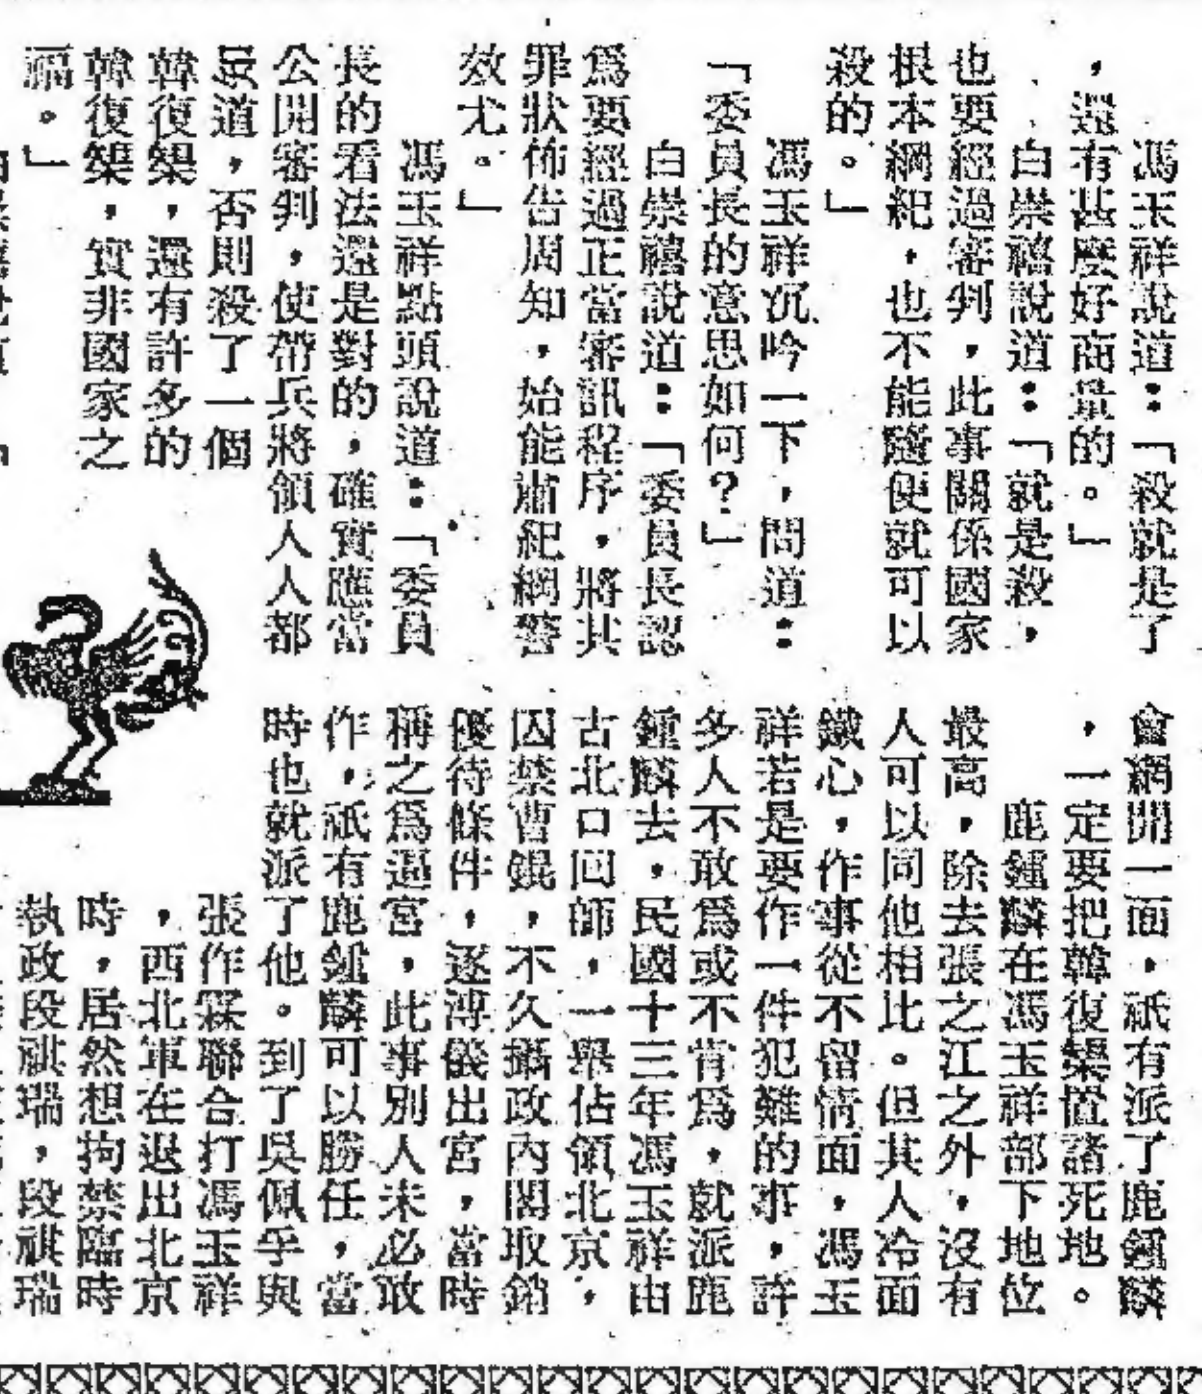 馮玉祥說道：「殺就是了
，還有甚麼好商量的。」
白崇禧說道：「就是殺，
也要經過審判，此事關係國家
根本綱紀，也不能隨便就可以
殺的。」
馮玉祥沉吟一下，問道：
「委員長的意思如何？」
白崇禧說道：「委員長認
爲要經過正當審訊程序，將其
罪狀佈告周知，始能肅紀綱警
效尤。」
馮玉祥點頭說道：「委員
長的看法還是對的，確實應當
公開審判，使帶兵將領人人都
知道，否則殺了一個
韓復榘，還有許多的
韓復榘，實非國家之
福。」
會網開一面，祇有派了鹿鍾麟
，一定要把韓復榘置諸死地。
鹿鍾麟在馮玉祥部下地位
最高，除去張之江之外，沒有
人可以同他相比。但其人冷面
鐵心，作事從不留情面，馮玉
祥若是要作一件犯難的事，許
多人不敢爲或不肯爲，就派鹿
鍾麟去，民國十三年馮玉祥由
古北口回師，一舉佔領北京，
囚禁曹錕，不久攝政內閣取銷
優待條件，逐溥儀出宮，當時
稱之爲逼宮，此事別人未必敢
作，祇有鹿鍾麟可以勝任，當
時也就派了他。到了吳佩孚與
張作霖聯合打馮玉祥
，西北軍在退出北京
時，居然想拘禁臨時
執政段祺瑞，段祺瑞